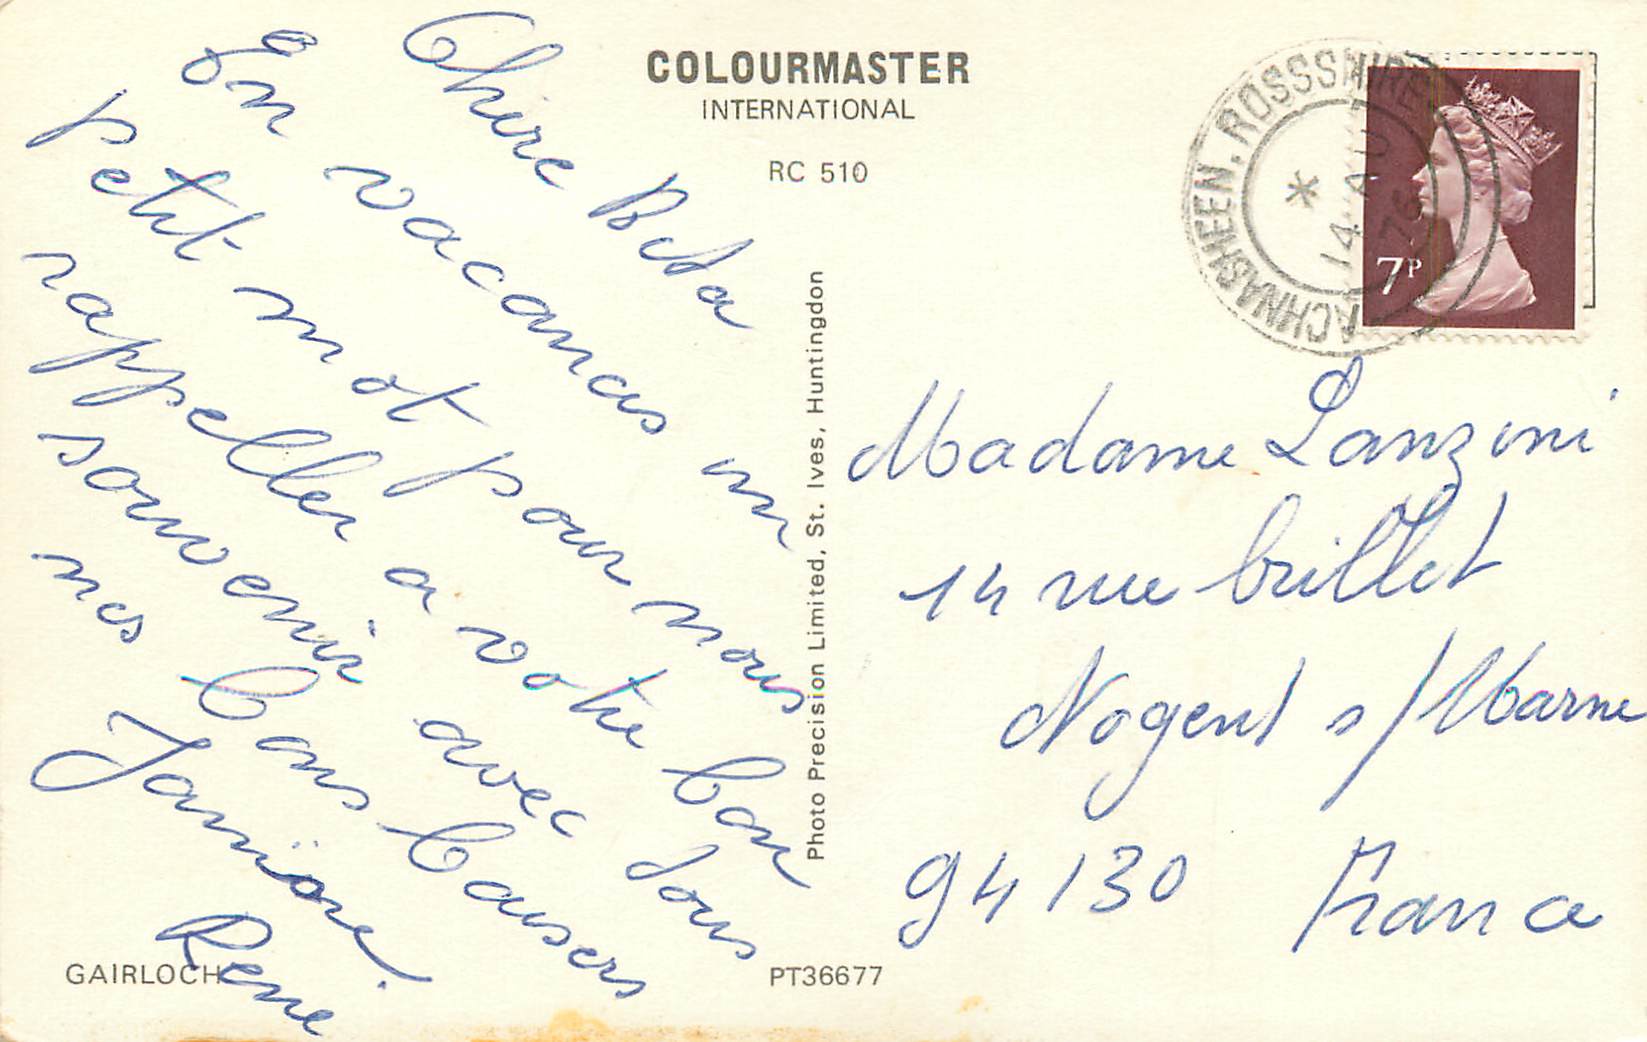 COLOURMASTER
INTERNATIONAL
RC 510
ACHNASHEEN. ROSSSHIRE
14 AU
76
7P
Chère Beta
En vacances un
petit mot pour nous
rappeller a votre bon
souvenir avec tous
nos bons baisers
Janine
René
Photo Precision Limited, St. Ives, Huntingdon
Madame Lanzini
14 rue brillet
Nogent s/Marne
94130 France
GAIRLOCH
PT36677